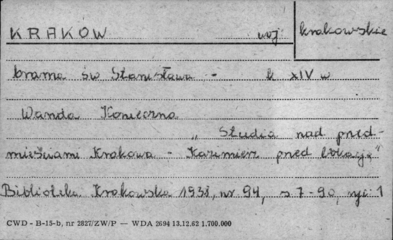 KRAKOW woj. krakowskie
brama św Stanisława - k XIV w
Wanda Konieczna
„Studia nad przed-
mieściami Krakowa - Kazimierz przed lokacją"
Biblioteka Krakowska 1938, nr 94, s 7-90, ryc. 1
CWD - B-15-b, nr 2827/ZW/P — WDA 2694 13.12.62 1.700.000